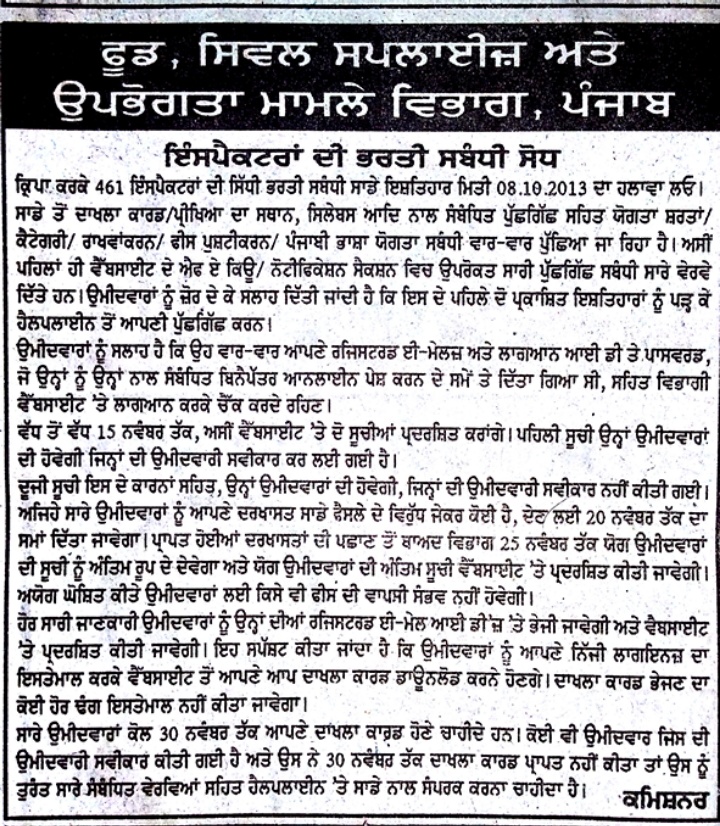 ਫੂਡ, ਸਿਵਲ ਸਪਲਾਈਜ਼ ਅਤੇ
ਉਪਭੋਗਤਾ ਮਾਮਲੇ ਵਿਭਾਗ, ਪੰਜਾਬ
ਇੰਸਪੈਕਟਰਾਂ ਦੀ ਭਰਤੀ ਸਬੰਧੀ ਸੋਧ
ਕ੍ਰਿਪਾ ਕਰਕੇ 461 ਇੰਸਪੈਕਟਰਾਂ ਦੀ ਸਿੱਧੀ ਭਰਤੀ ਸਬੰਧੀ ਸਾਡੇ ਇਸ਼ਤਿਹਾਰ ਮਿਤੀ 08.10.2013 ਦਾ ਹਲਾਵਾ ਲਓ।
ਸਾਡੇ ਤੋਂ ਦਾਖਲਾ ਕਾਰਡ/ਪ੍ਰੀਖਿਆ ਦਾ ਸਥਾਨ, ਸਿਲੇਬਸ ਆਦਿ ਨਾਲ ਸੰਬੰਧਿਤ ਪੁੱਛਗਿੱਛ ਸਹਿਤ ਯੋਗਤਾ ਸ਼ਰਤਾਂ/
ਕੈਟੇਗਰੀ/ ਰਾਖਵਾਂਕਰਨ/ ਫੀਸ ਪੁਸ਼ਟੀਕਰਨ/ ਪੰਜਾਬੀ ਭਾਸ਼ਾ ਯੋਗਤਾ ਸਬੰਧੀ ਵਾਰ-ਵਾਰ ਪੁੱਛਿਆ ਜਾ ਰਿਹਾ ਹੈ। ਅਸੀਂ
ਪਹਿਲਾਂ ਹੀ ਵੈੱਬਸਾਈਟ ਦੇ ਐਫ ਏ ਕਿਊ/ ਨੋਟੀਫਿਕੇਸ਼ਨ ਸੈਕਸ਼ਨ ਵਿਚ ਉਪਰੋਕਤ ਸਾਰੀ ਪੁੱਛਗਿੱਛ ਸਬੰਧੀ ਸਾਰੇ ਵੇਰਵੇ
ਦਿੱਤੇ ਹਨ। ਉਮੀਦਵਾਰਾਂ ਨੂੰ ਜ਼ੋਰ ਦੇ ਕੇ ਸਲਾਹ ਦਿੱਤੀ ਜਾਂਦੀ ਹੈ ਕਿ ਇਸ ਦੇ ਪਹਿਲੇ ਦੋ ਪ੍ਰਕਾਸ਼ਿਤ ਇਸ਼ਤਿਹਾਰਾਂ ਨੂੰ ਪੜ੍ਹ ਕੇ
ਹੈਲਪਲਾਈਨ ਤੋਂ ਆਪਣੀ ਪੁੱਛਗਿੱਛ ਕਰਨ।
ਉਮੀਦਵਾਰਾਂ ਨੂੰ ਸਲਾਹ ਹੈ ਕਿ ਉਹ ਵਾਰ-ਵਾਰ ਆਪਣੇ ਰਜਿਸਟਰਡ ਈ-ਮੇਲਜ਼ ਅਤੇ ਲਾਗਆਨ ਆਈ ਡੀ ਤੇ ਪਾਸਵਰਡ,
ਜੋ ਉਨ੍ਹਾਂ ਨੂੰ ਉਨ੍ਹਾਂ ਨਾਲ ਸੰਬੰਧਿਤ ਬਿਨੈਪੱਤਰ ਆਨਲਾਈਨ ਪੇਸ਼ ਕਰਨ ਦੇ ਸਮੇਂ ਤੇ ਦਿੱਤਾ ਗਿਆ ਸੀ, ਸਹਿਤ ਵਿਭਾਗੀ
ਵੈੱਬਸਾਈਟ 'ਤੇ ਲਾਗਆਨ ਕਰਕੇ ਚੈੱਕ ਕਰਦੇ ਰਹਿਣ।
ਵੱਧ ਤੋਂ ਵੱਧ 15 ਨਵੰਬਰ ਤੱਕ, ਅਸੀਂ ਵੈੱਬਸਾਈਟ 'ਤੇ ਦੋ ਸੂਚੀਆਂ ਪ੍ਰਦਰਸ਼ਿਤ ਕਰਾਂਗੇ। ਪਹਿਲੀ ਸੂਚੀ ਉਨ੍ਹਾਂ ਉਮੀਦਵਾਰਾਂ
ਦੀ ਹੋਵੇਗੀ ਜਿਨ੍ਹਾਂ ਦੀ ਉਮੀਦਵਾਰੀ ਸਵੀਕਾਰ ਕਰ ਲਈ ਗਈ ਹੈ।
ਦੂਜੀ ਸੂਚੀ ਇਸ ਦੇ ਕਾਰਨਾਂ ਸਹਿਤ, ਉਨ੍ਹਾਂ ਉਮੀਦਵਾਰਾਂ ਦੀ ਹੋਵੇਗੀ, ਜਿਨ੍ਹਾਂ ਦੀ ਉਮੀਦਵਾਰੀ ਸਵੀਕਾਰ ਨਹੀਂ ਕੀਤੀ ਗਈ।
ਅਜਿਹੇ ਸਾਰੇ ਉਮੀਦਵਾਰਾਂ ਨੂੰ ਆਪਣੇ ਦਰਖਾਸਤ ਸਾਡੇ ਫੈਸਲੇ ਦੇ ਵਿਰੁੱਧ ਜੇਕਰ ਕੋਈ ਹੈ, ਦੇਣ ਲਈ 20 ਨਵੰਬਰ ਤੱਕ ਦਾ
ਸਮਾਂ ਦਿੱਤਾ ਜਾਵੇਗਾ। ਪ੍ਰਾਪਤ ਹੋਈਆਂ ਦਰਖਾਸਤਾਂ ਦੀ ਪਛਾਣ ਤੋਂ ਬਾਅਦ ਵਿਭਾਗ 25 ਨਵੰਬਰ ਤੱਕ ਯੋਗ ਉਮੀਦਵਾਰਾਂ
ਦੀ ਸੂਚੀ ਨੂੰ ਅੰਤਿਮ ਰੂਪ ਦੇ ਦੇਵੇਗਾ ਅਤੇ ਯੋਗ ਉਮੀਦਵਾਰਾਂ ਦੀ ਅੰਤਿਮ ਸੂਚੀ ਵੈੱਬਸਾਈਟ 'ਤੇ ਪ੍ਰਦਰਸ਼ਿਤ ਕੀਤੀ ਜਾਵੇਗੀ।
ਅਯੋਗ ਘੋਸ਼ਿਤ ਕੀਤੇ ਉਮੀਦਵਾਰਾਂ ਲਈ ਕਿਸੇ ਵੀ ਫੀਸ ਦੀ ਵਾਪਸੀ ਸੰਭਵ ਨਹੀਂ ਹੋਵੇਗੀ।
ਹੋਰ ਸਾਰੀ ਜਾਣਕਾਰੀ ਉਮੀਦਵਾਰਾਂ ਨੂੰ ਉਨ੍ਹਾਂ ਦੀਆਂ ਰਜਿਸਟਰਡ ਈ-ਮੇਲ ਆਈ ਡੀ'ਜ਼ 'ਤੇ ਭੇਜੀ ਜਾਵੇਗੀ ਅਤੇ ਵੈਬਸਾਈਟ
'ਤੇ ਪ੍ਰਦਰਸ਼ਿਤ ਕੀਤੀ ਜਾਵੇਗੀ। ਇਹ ਸਪੱਸ਼ਟ ਕੀਤਾ ਜਾਂਦਾ ਹੈ ਕਿ ਉਮੀਦਵਾਰਾਂ ਨੂੰ ਆਪਣੇ ਨਿੱਜੀ ਲਾਗਇਨਜ਼ ਦਾ
ਇਸਤੇਮਾਲ ਕਰਕੇ ਵੈੱਬਸਾਈਟ ਤੋਂ ਆਪਣੇ ਆਪ ਦਾਖਲਾ ਕਾਰਡ ਡਾਊਨਲੋਡ ਕਰਨੇ ਹੋਣਗੇ। ਦਾਖਲਾ ਕਾਰਡ ਭੇਜਣ ਦਾ
ਕੋਈ ਹੋਰ ਢੰਗ ਇਸਤੇਮਾਲ ਨਹੀਂ ਕੀਤਾ ਜਾਵੇਗਾ।
ਸਾਰੇ ਉਮੀਦਵਾਰਾਂ ਕੋਲ 30 ਨਵੰਬਰ ਤੱਕ ਆਪਣੇ ਦਾਖਲਾ ਕਾਰਡ ਹੋਣੇ ਚਾਹੀਦੇ ਹਨ। ਕੋਈ ਵੀ ਉਮੀਦਵਾਰ ਜਿਸ ਦੀ
ਉਮੀਦਵਾਰੀ ਸਵੀਕਾਰ ਕੀਤੀ ਗਈ ਹੈ ਅਤੇ ਉਸ ਨੇ 30 ਨਵੰਬਰ ਤੱਕ ਦਾਖਲਾ ਕਾਰਡ ਪ੍ਰਾਪਤ ਨਹੀਂ ਕੀਤਾ ਤਾਂ ਉਸ ਨੂੰ
ਤੁਰੰਤ ਸਾਰੇ ਸੰਬੰਧਿਤ ਵੇਰਵਿਆਂ ਸਹਿਤ ਹੈਲਪਲਾਈਨ 'ਤੇ ਸਾਡੇ ਨਾਲ ਸੰਪਰਕ ਕਰਨਾ ਚਾਹੀਦਾ ਹੈ। ਕਮਿਸ਼ਨਰ